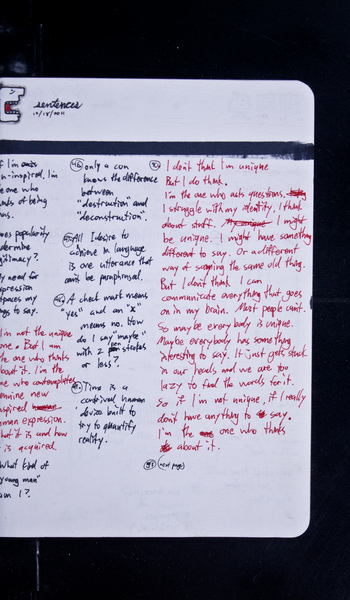 sentences
10/18/2011
f I'm not
n-inspired, I'm
e one who
nds of being
es popularity
dermine
gitimacy?
y need for
xpression
tpaces my
gs to say.
I'm not the unique
one. But I am
the one who thinks
bout it. I'm the
ne who contemplates
nuine new
spired
uman expression.
hat it is and how
is acquired.
What kind of
young man"
am I?
only a con
knows the difference
between
"destruction" and
"deconstruction".
All I desire to
achieve in language
is one utterance that
can't be paraphrased.
A check mark means
"yes" and an "x"
means no. How
do I say "maybe"
with 2 pen strokes
or less?
Time is a
contrived human
device built to
try to quantify
reality.
I don't think I'm unique
But I do think.
I'm the one who asks questions.
I struggle with my identity. I think
about stuff. I might
be unique. I might have something
different to say. Or a different
way of saying the same old thing.
But I don't think I can
communicate everything that goes
on in my brain. Most people can't.
So maybe everybody is unique.
Maybe everybody has something
interesting to say. It just gets stuck
in our heads and we are too
lazy to find the words for it.
So if I'm not unique, if I really
don't have anything to say.
I'm the one who thinks
about it.
(next page)